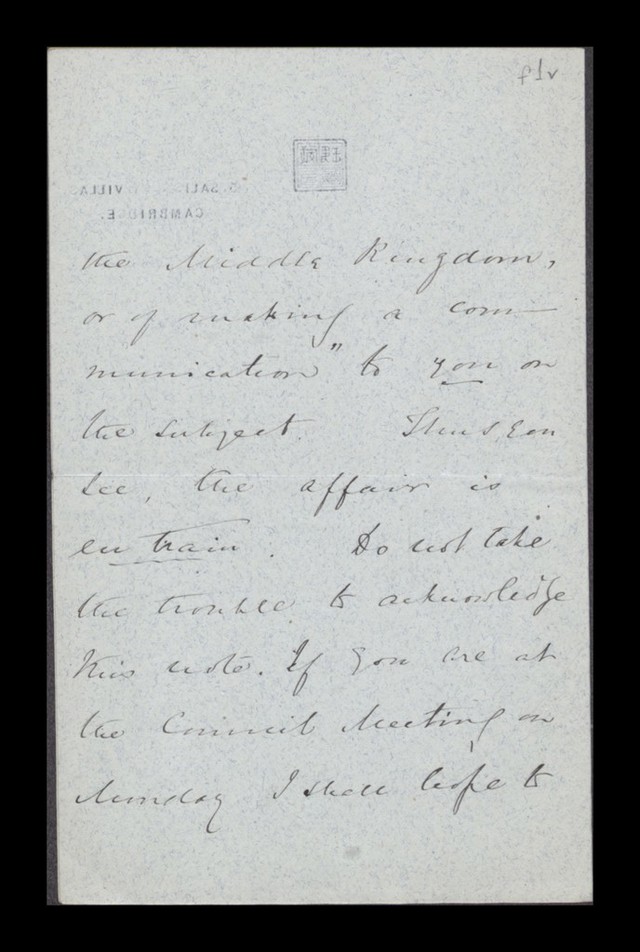 p1v
the Middle Kingdom,
or of making a com-
munication" to you on
the subject. Thus you
see, the affair is
en train. Do not take
the trouble to acknowledge
this note. If you are at
the Council Meeting on
Monday I shall hope to